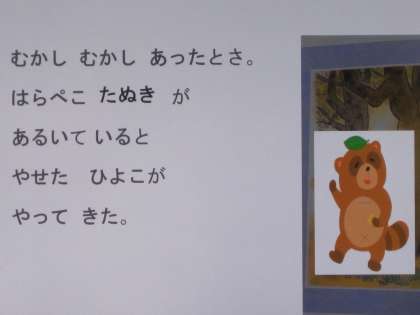 むかし むかし あったとさ。
はらぺこ たぬき が
あるいて いると
やせた ひよこが
やって きた。